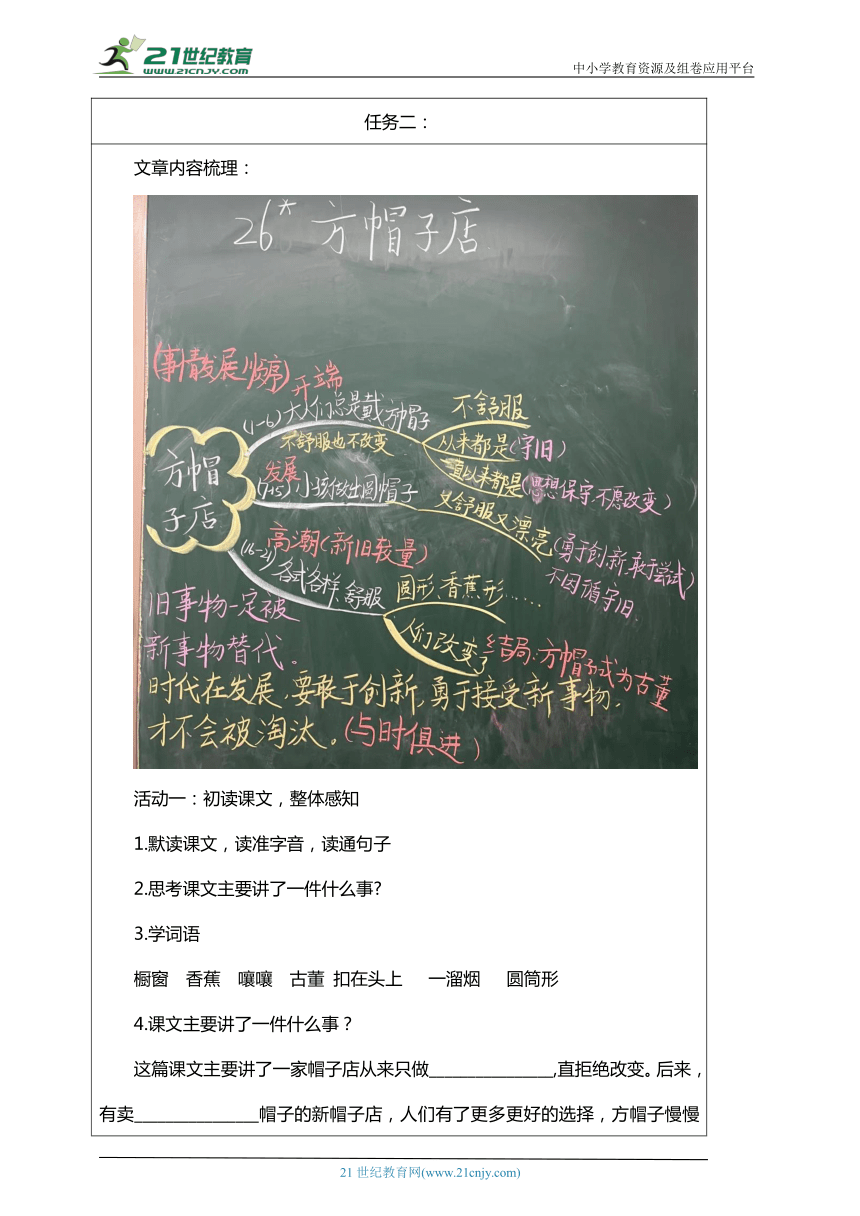 21世纪教育
WWW.21CNJY.COM
中小学教育资源及组卷应用平台
任务二：
文章内容梳理：
26* 方帽子店
(事情发展顺序)开端
(1-6)大人们总是戴方帽子
不舒服也不改变
不舒服
从来都是(守旧)
一直以来都是(思想保守,不愿改变)
方帽子店
发展
(7-15)小孩做出圆帽子
又舒服又漂亮(勇于创新,敢于尝试)
不因循守旧.
高潮(新旧较量)
(16-21)各式各样,舒服
圆形、香蕉形……
人们改变了
结局:方帽子成为古董
旧事物一定被
新事物替代。
时代在发展,要敢于创新,勇于接受新事物,
才不会被淘汰。(与时俱进)
活动一：初读课文，整体感知
1.默读课文，读准字音，读通句子
2.思考课文主要讲了一件什么事?
3.学词语
橱窗 香蕉 嚷嚷 古董 扣在头上 一溜烟 圆筒形
4.课文主要讲了一件什么事？
这篇课文主要讲了一家帽子店从来只做_______________,直拒绝改变。后来，
有卖_______________帽子的新帽子店，人们有了更多更好的选择，方帽子慢慢
21世纪教育网(www.21cnjy.com)